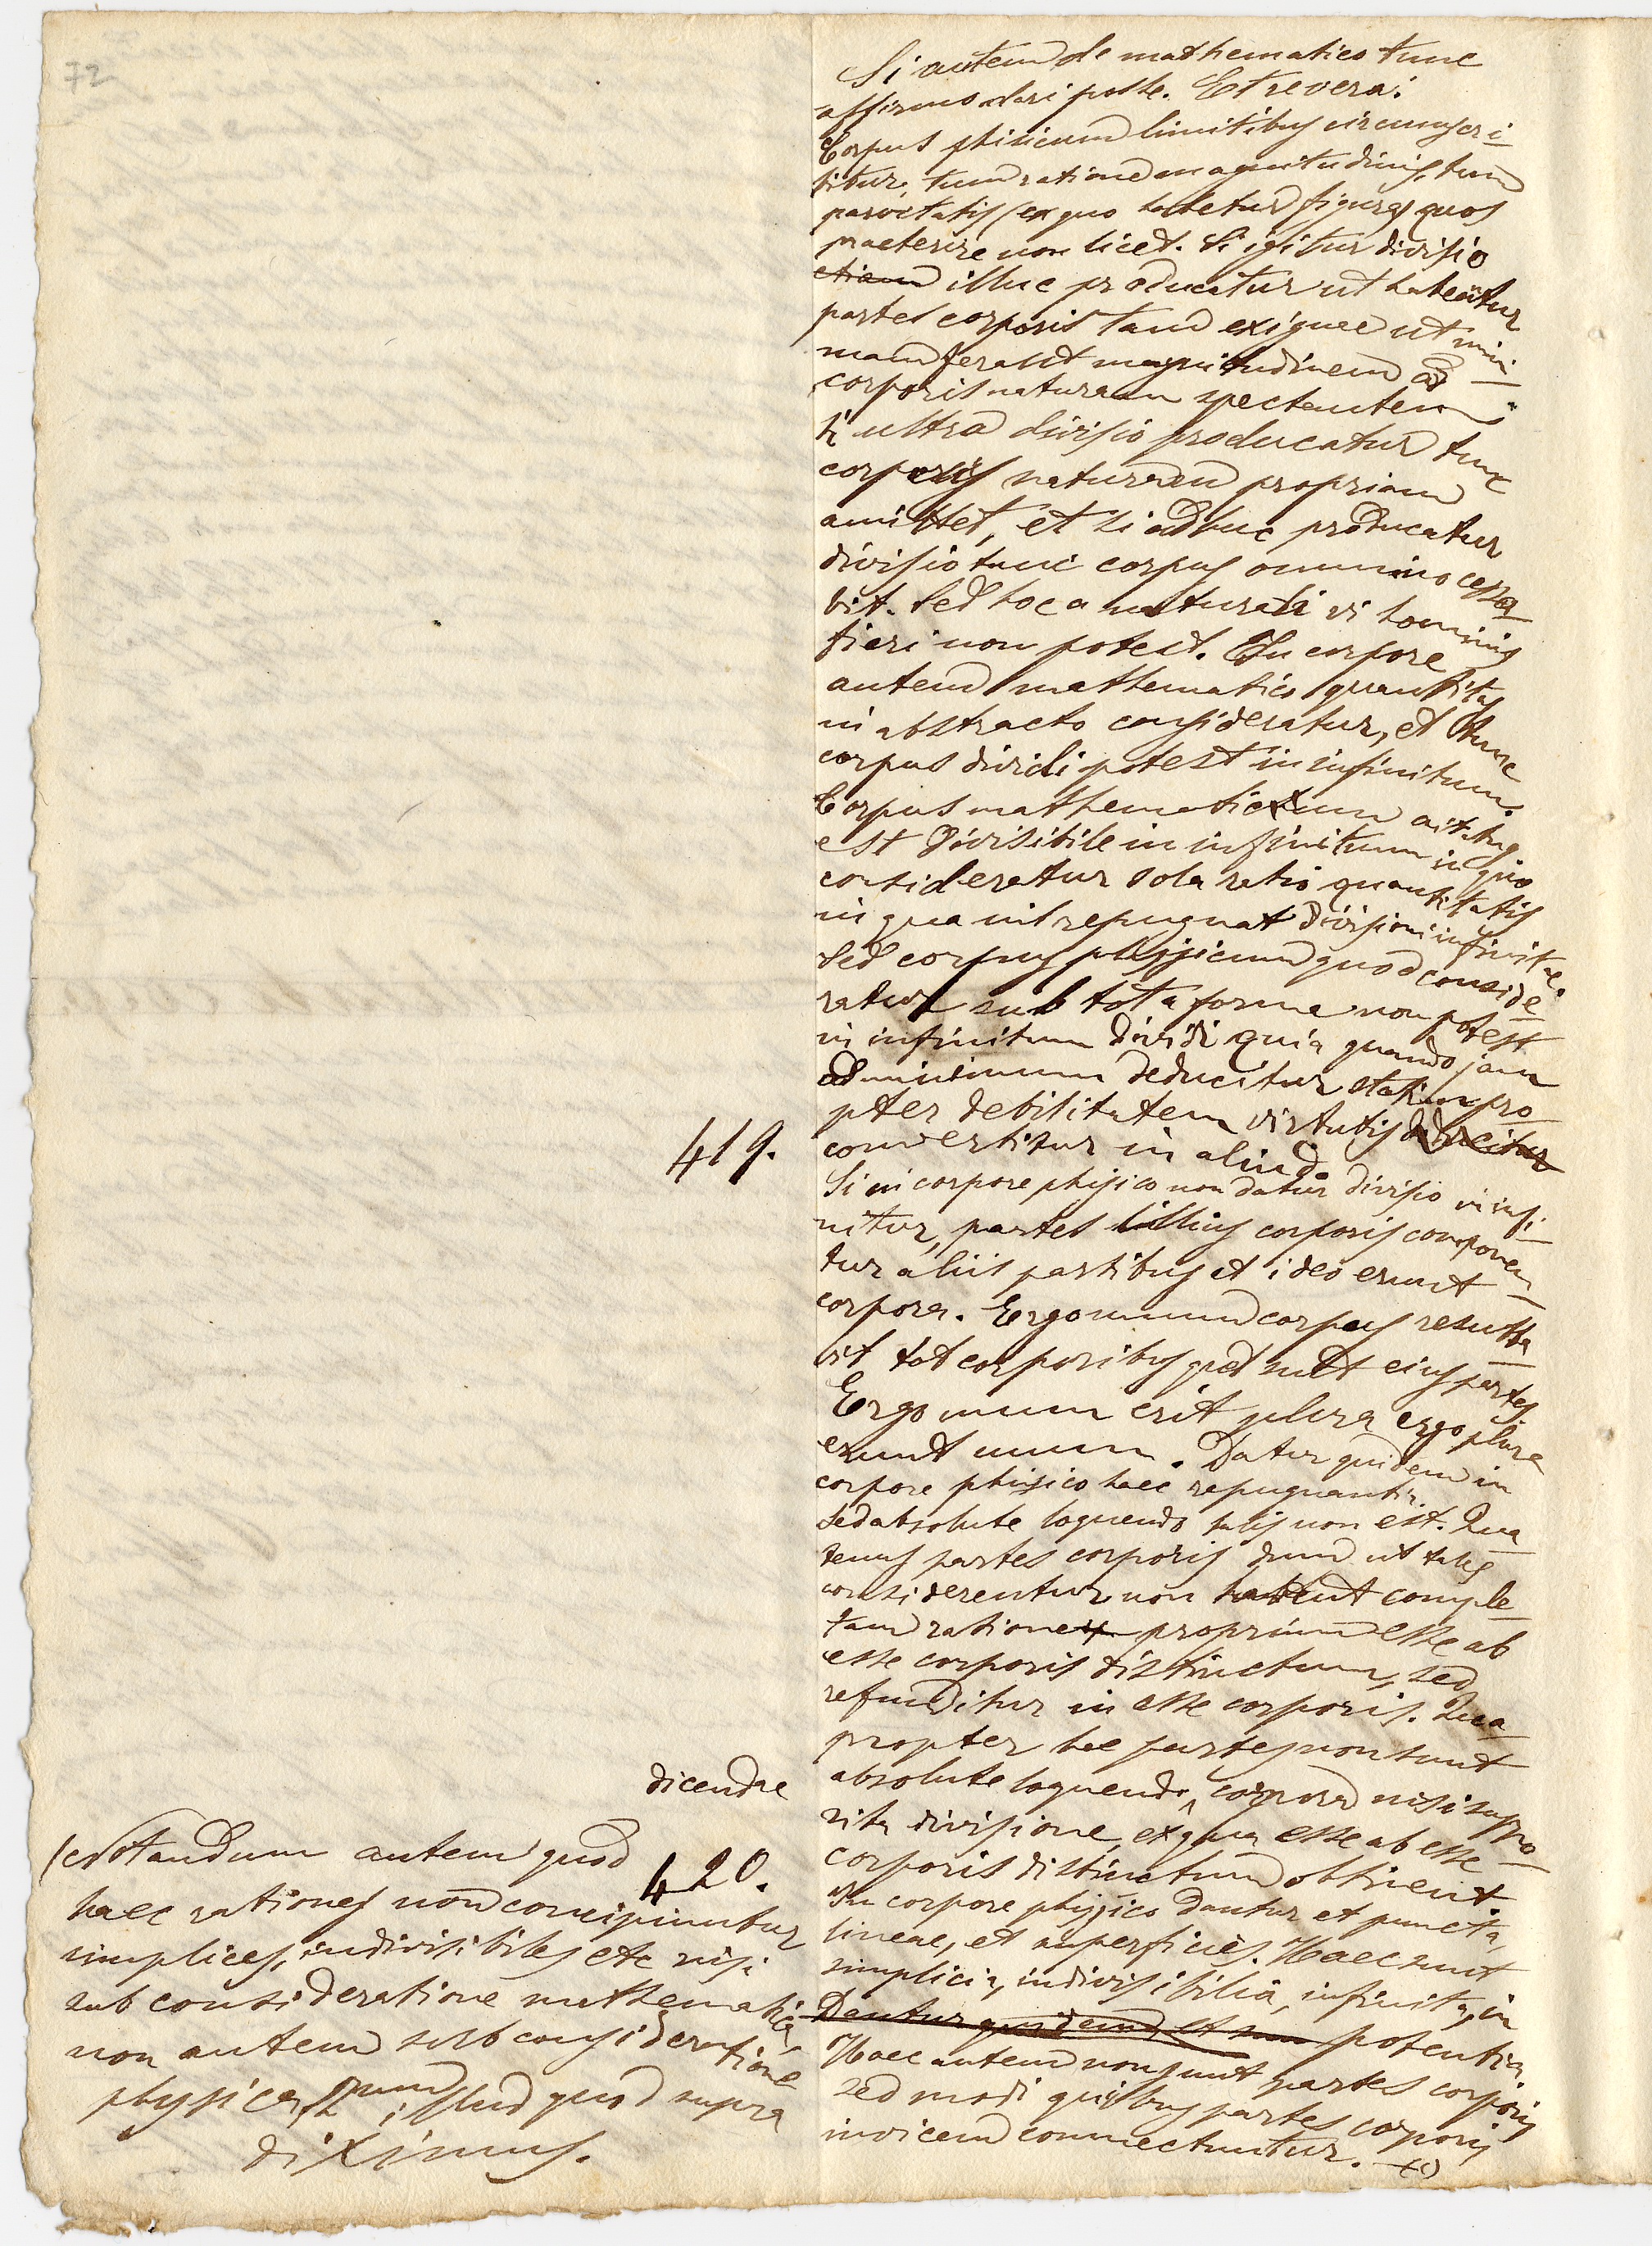 72
Si autem de mathematico tunc
affirmo dari posse. Et revera:
Corpus phisicum limitibus circumscri-
bitur, tum ratione magnitudinis, tum
parvitatis (ex quo habetur figura) quos
praeterire non licet. Si igitur divisio
etiam illuc producatur ut habeantur
partes corporis tam exiguae ut mini-
mam ferant magnitudinem ad
corporis naturam spectantem
si ultra divisio producatur tunc
corpus naturam propriam
amittet, et si adhuc producatur
divisio tunc corpus omnino cessa-
bit. Sed hoc a naturali vi hominis
fieri non potest. In corpore
autem mathematico quantitas
in abstracto consideratur, et tunc
corpus dividi potest in infinitum.
Corpus mathematicum
est divisibile in infinitum in quo
consideratur sola ratio quantitatis
in qua nil repugnat divisioni infinitae.
Sed corpus physicum quod conside-
ratur sub tota forma non potest
in infinitum dividi quia quando jam
ad minimum deducitur statim pro-
pter debilitatem virtutis deducitur
convertitur in aliud.
419.
Si in corpore phisico non datur divisio in infi-
nitum, partes illius corporis componen-
tur aliis partibus et ideo erunt
corpora. Ergo unum corpus resulta-
bit tot corporibus quot sunt eius partes
Ergo unum erit plura ergo plura
erunt unum. Datur quidem in
corpore phisico haec repugnantia
sed absolute loquendo talis non est. Qua-
tenus partes corporis dum ut tales
considerentur non habent comple-
tam rationem proprium esse ab
esse corporis distinctum, sed
refunditur in esse corporis. Qua-
propter hae partes non sunt
absolute loquendo, corpora nisi suppo-
dicendae
sita divisione, ex qua esse ab esse
corporis distinctum obtinent.
420.
In corpore physico dantur et puncta,
lineae, et superficies. Haec sunt
simplicia, indivisibilia, infinita, in
Dantur quidem et sunt potentia
Haec autem non sunt partes corporis
sed modi quibus partes corporis
invicem connectuntur. (x)
(x) Notandum autem quod
haec rationes non concipiuntur
simplices, indivisibiles etc nisi
sub consideratione mathematica
non autem sub consideratione
physica, quum illud quod supra
diximus.